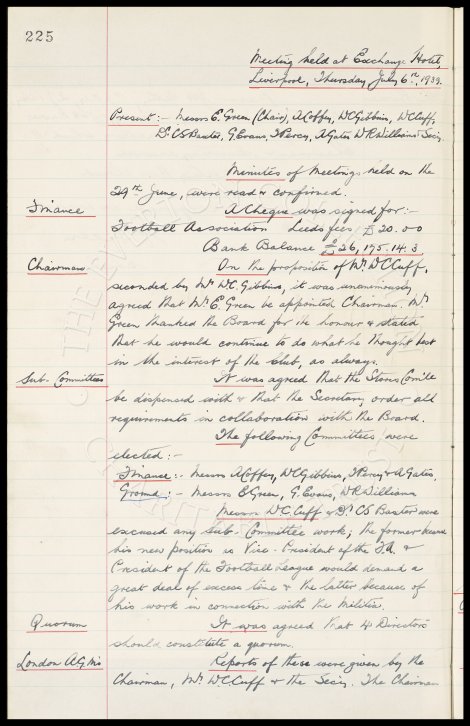 225
Meeting held at Exchange Hotel,
Liverpool, Thursday July 6th, 1939.
Present:- Messrs E. Green (Chair), A Coffey, W C Gibbins, W C Cuff,
Dr CS Baxter, G. Evans, T Percy, A Gates W R Williams & Secy.
Minutes of Meetings held on the
29th June, were read & confirmed.
Finance
A Cheque was signed for:-
Football Association Leeds fees, £20.00
Bank Balance £26,175.14.3
Chairman
On the proposition of Mr. W C Cuff,
seconded by Mr W C Gibbins, it was unanimously
agreed that Mr E. Green be appointed Chairman. Mr
Green thanked the Board for the honour & stated
that he would continue to do what he thought best
in the interest of the Club, as always.
Sub-Committees
It was agreed that the Stores Com'tee
be dispensed with & that the Secretary order all
requirements in collaboration with the Board.
The following Committees were
elected:-
Finance:- Messrs A Coffey, W C Gibbins, T Percy & A Gates.
Ground:- Messrs E Green, G. Evans, W R Williams
Messrs W.C. Cuff & Dr CS Baxter were
excused any Sub-Committee work, the former because
his new position as Vice-President of the F.A. &
President of the Football League would demand a
great deal of excess time & the latter because of
his work in connection with the Militia.
Quorum
It was agreed that 4 Directors
should constitute a quorum.
London A.G.M's
Reports of these were given by the
Chairman, Mr. W C Cuff & the Secy. The Chairman